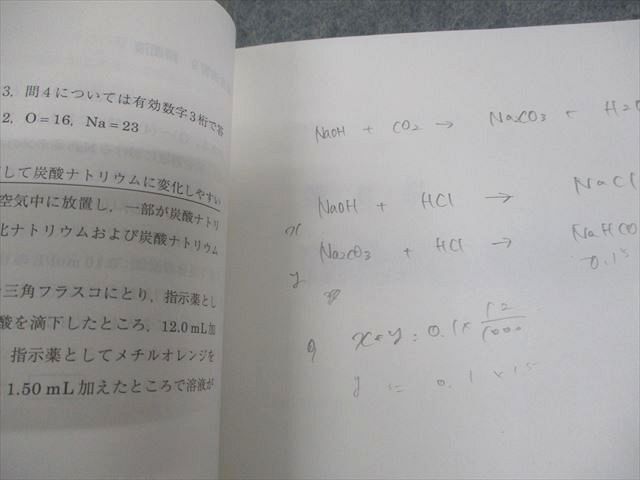 3. 問4については有効数字3桁で答
2, O=16, Na=23
して炭酸ナトリウムに変化しやすい
空気中に放置し，一部が炭酸ナトリ
化ナトリウムおよび炭酸ナトリウム
三角フラスコにとり，指示薬とし
酸を滴下したところ，12.0mL加
指示薬としてメチルオレンジを
1.50 mL 加えたところで溶液が
NaOH + CO2 → Na2CO3 + H2O
NaOH + HCl → NaCl
x
Na2CO3 + HCl → NaHCO
y
0.15
x+y = 0.1 × 12/1000
y = 0.1 × 15